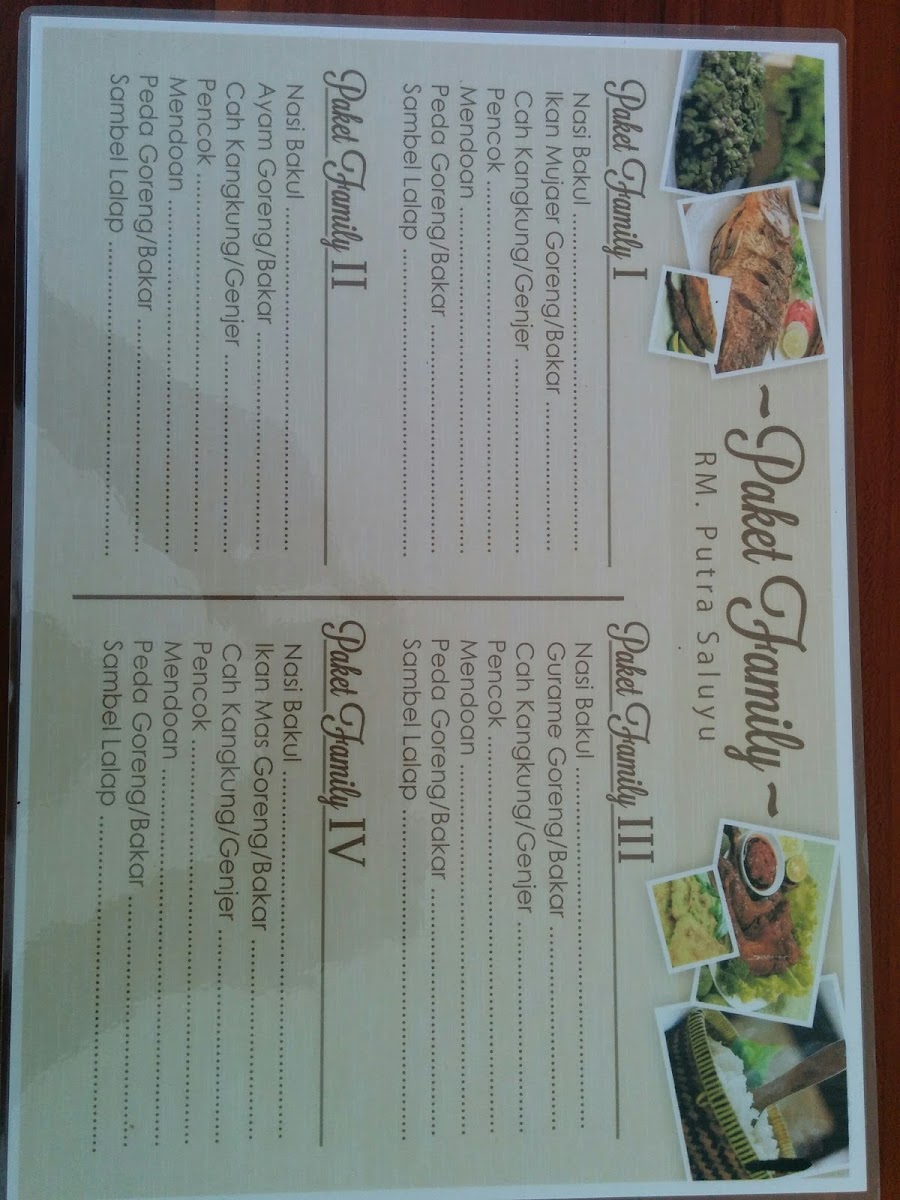 ~Paket Family~
RM. Putra Saluyu
Paket Family I
Nasi Bakul ................................................
Ikan Mujaer Goreng/Bakar ......................
Cah Kangkung/Genjer .............................
Pencok .....................................................
Mendoan ..................................................
Peda Goreng/Bakar .................................
Sambel Lalap ...........................................
Paket Family II
Nasi Bakul ................................................
Ayam Goreng/Bakar ................................
Cah Kangkung/Genjer .............................
Pencok .....................................................
Mendoan ..................................................
Peda Goreng/Bakar .................................
Sambel Lalap ...........................................
Paket Family III
Nasi Bakul ................................................
Gurame Goreng/Bakar ............................
Cah Kangkung/Genjer .............................
Pencok .....................................................
Mendoan ..................................................
Peda Goreng/Bakar .................................
Sambel Lalap ...........................................
Paket Family IV
Nasi Bakul ................................................
Ikan Mas Goreng/Bakar ..........................
Cah Kangkung/Genjer .............................
Pencok .....................................................
Mendoan ..................................................
Peda Goreng/Bakar .................................
Sambel Lalap ...........................................